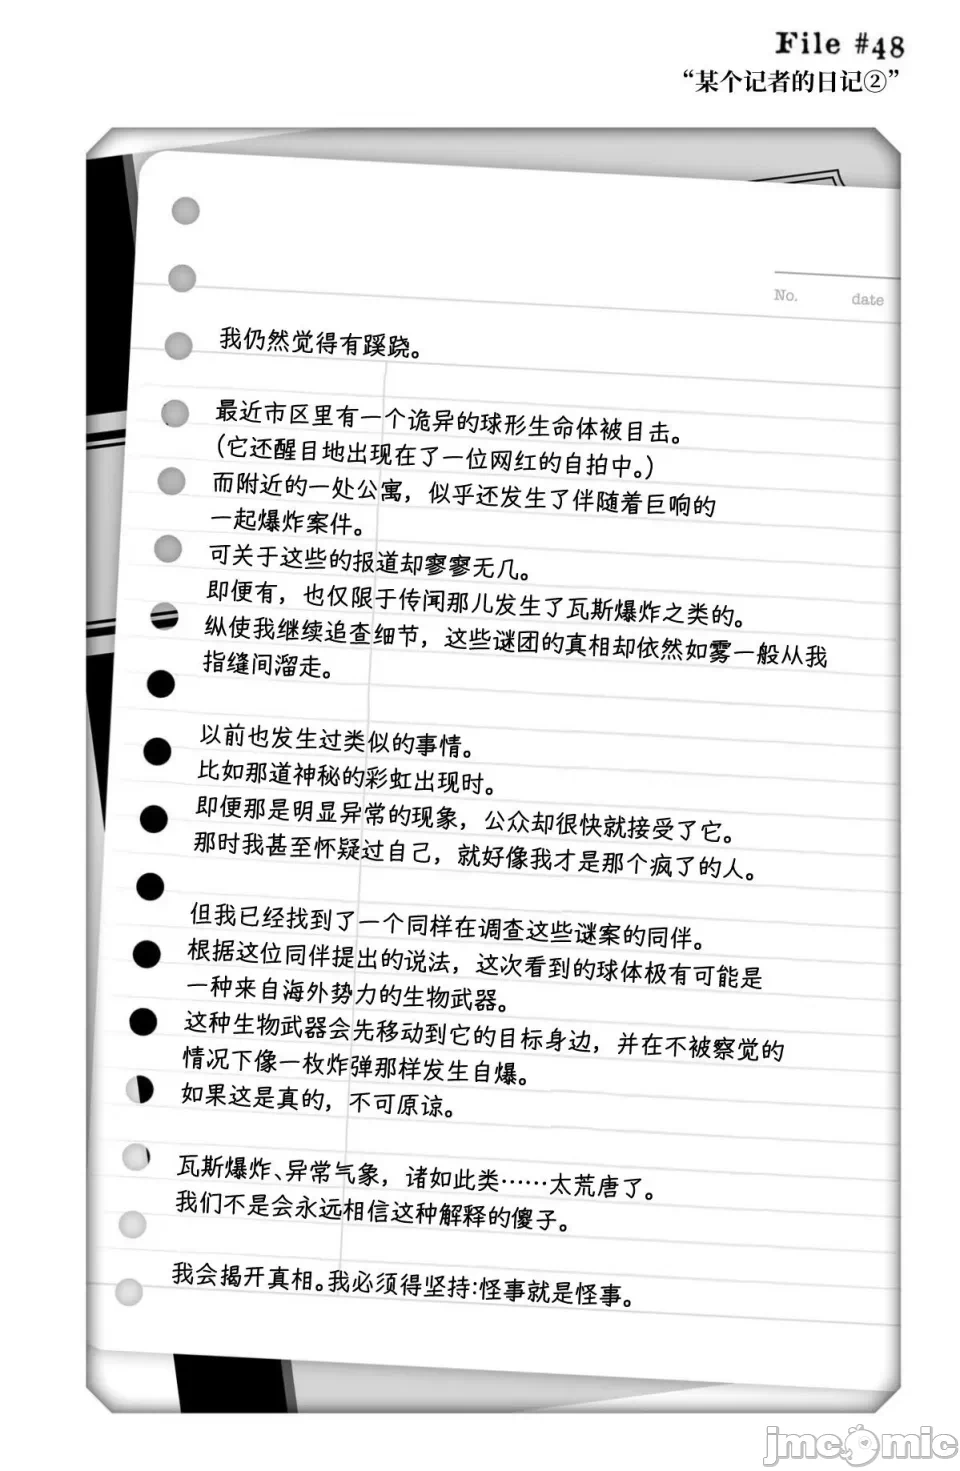 File #48
“某个记者的日记②”
No. date
我仍然觉得有蹊跷。
最近市区里有一个诡异的球形生命体被目击。
（它还醒目地出现在了一位网红的自拍中。）
而附近的一处公寓，似乎还发生了伴随着巨响的
一起爆炸案件。
可关于这些的报道却寥寥无几。
即便有，也仅限于传闻那儿发生了瓦斯爆炸之类的。
纵使我继续追查细节，这些谜团的真相却依然如雾一般从我
指缝间溜走。
以前也发生过类似的事情。
比如那道神秘的彩虹出现时。
即便那是明显异常的现象，公众却很快就接受了它。
那时我甚至怀疑过自己，就好像我才是那个疯了的人。
但我已经找到了一个同样在调查这些谜案的同伴。
根据这位同伴提出的说法，这次看到的球体极有可能是
一种来自海外势力的生物武器。
这种生物武器会先移动到它的目标身边，并在不被察觉的
情况下像一枚炸弹那样发生自爆。
如果这是真的，不可原谅。
瓦斯爆炸、异常气象，诸如此类……太荒唐了。
我们不是会永远相信这种解释的傻子。
我会揭开真相。我必须得坚持：怪事就是怪事。
jmcomic